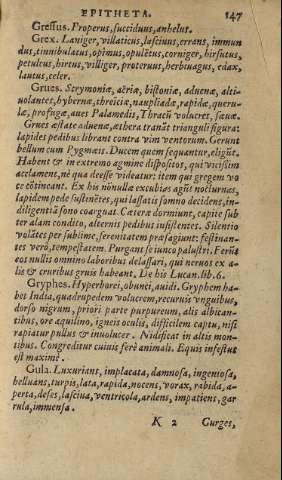 EPITHETA. 147
Gressus. Properus, succiduus, anhelus.
Grex. Laniger, villaticus, lasciuus, errans, immun
dus, tinnibulatus, opimus, opulētus, corniger, hirsutus,
petulcus, hirtus, villiger, proteruus, herbiuagus, edax,
lautus, celer.
Grues. Strymoniæ, aëriæ, bistoniæ, aduenæ, alti-
uolantes, hybernæ, threiciæ, naupliadæ, rapidæ, queru-
læ, profugæ, aues Palamedis, Thracii volucres, sæuæ.
Grues æstate aduenæ, æthera tranāt trianguli figura:
lapides pedibus librant contra vim ventorum. Gerunt
bellum cum Pygmæis. Ducem quem sequantur, eligūt.
Habent & in extremo agmine dispositos, qui vicissim
acclament, ne qua deesse videatur: item qui gregem vo
ce cōtineant. Ex his nōnullæ excubias agūt nocturnas,
lapidem pede sustinētes, qui lassatis somno decidens, in-
diligentiā sono coarguat. Cæteræ dormiunt, capite sub
ter alam condito, alternis pedibus insistentes. Silentio
volātes per sublime, serenitatem præsagiunt: festinan-
tes verò, tempestatem. Purgant se iunco palustri. Ferūt
eos nullis omnino laboribus delassari, qui neruos ex a-
lis & cruribus gruis habeant. De his Lucan. lib. 6.
Gryphes. Hyperborei, obunci, auidi. Gryphem ha-
bet India, quadrupedem volucrem, recuruis vnguibus,
dorso nigrum, priori parte purpureum, alis albican-
tibus, ore aquilino, igneis oculis, difficilem captu, nisi
rapiatur pullus & inuolucer. Nidificat in altis mon-
tibus. Congreditur cuiuis ferè animali. Equis infestus
est maximè.
Gula. Luxurians, implacata, damnosa, ingeniosa,
helluans, turpis, lata, rapida, nocens, vorax, rabida, a-
perta, deses, lasciua, ventricola, ardens, impatiens, gar
rula, immensa.
K 2 Gurges,